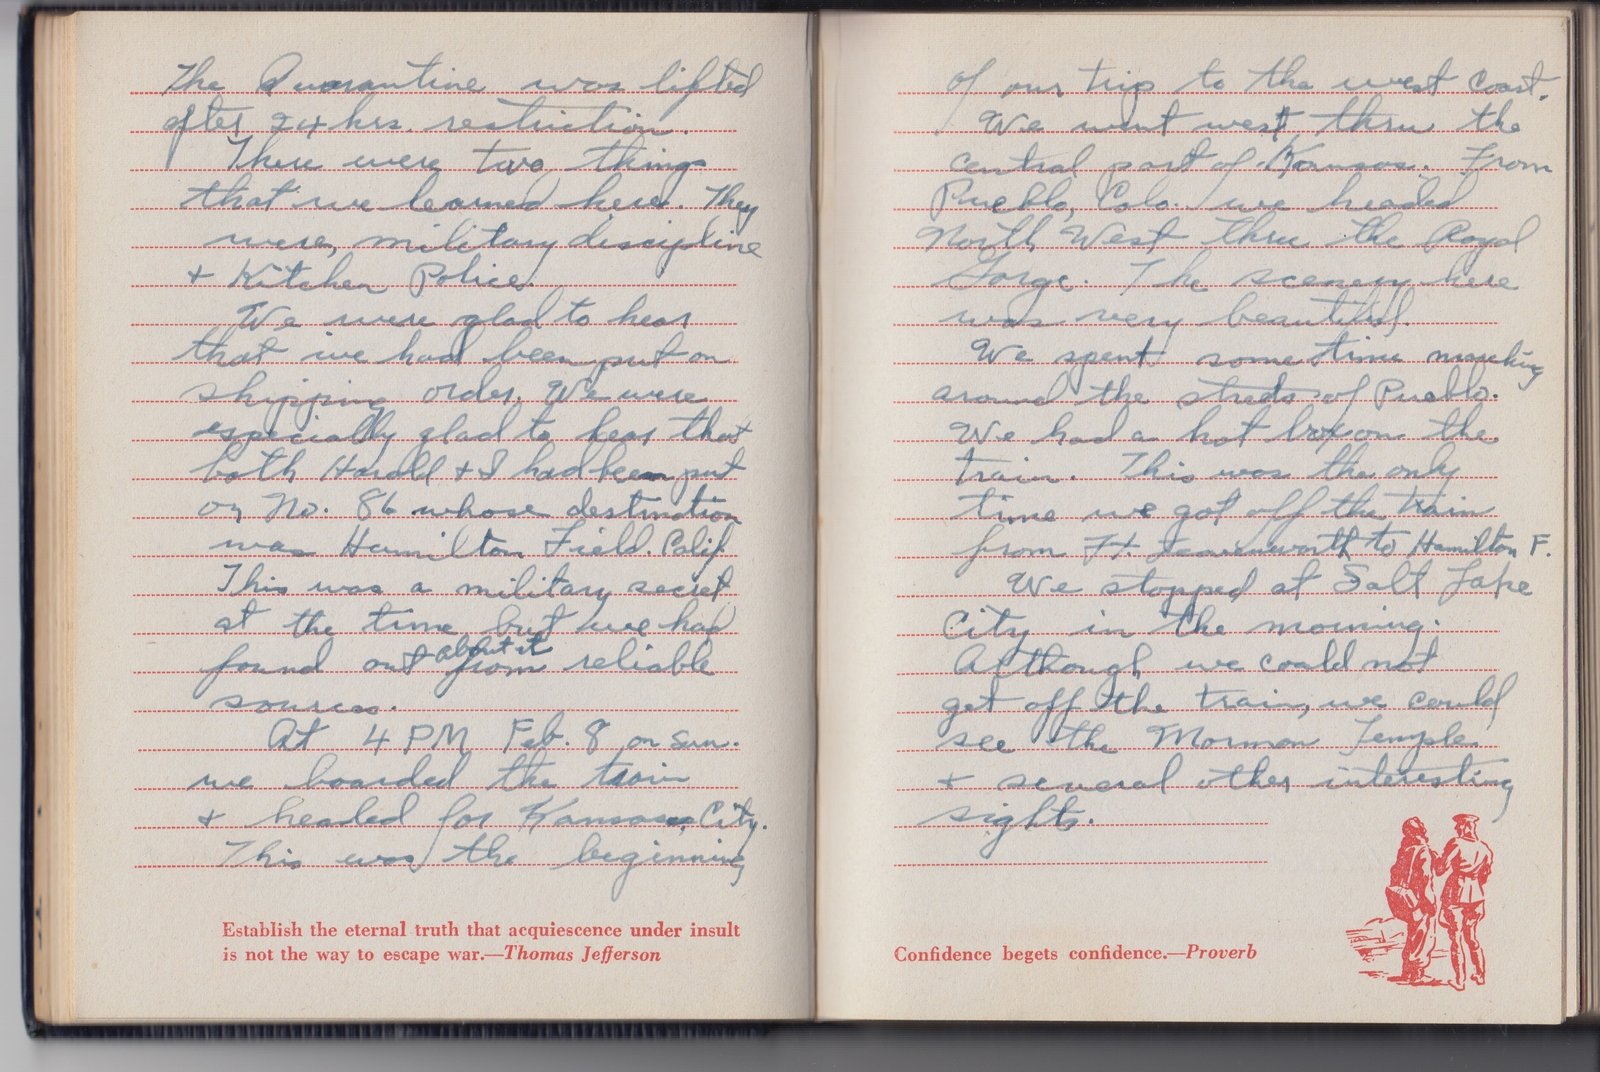 The Quarantine was lifted
after 24 hrs. restriction.
There were two things
that we learned here. They
were, military discipline
+ Kitchen Police.
We were glad to hear
that we had been put on
shipping order. We were
especially glad to hear that
both Harold + I had been put
on No. 86 whose destination
was Hamilton Field. Calif.
This was a military secret
at the time but we had
found out about it from reliable
sources.
At 4 PM Feb. 8 on Sun.
we boarded the train
+ headed for Kansas City.
This was the beginning
Establish the eternal truth that acquiescence under insult
is not the way to escape war.—Thomas Jefferson
of our trip to the west coast.
We went west thru the
central part of Kansas. From
Pueblo, Colo. we headed
North West thru the Royal
Gorge. The scenery here
was very beautiful.
We spent some time marching
around the streets of Pueblo.
We had a hot box on the
train. This was the only
time we got off the train
from Ft. Leavenworth to Hamilton F.
We stopped at Salt Lake
City in the morning.
Although we could not
get off the train, we could
see the Mormon Temple
+ several other interesting
sights.
Confidence begets confidence.—Proverb